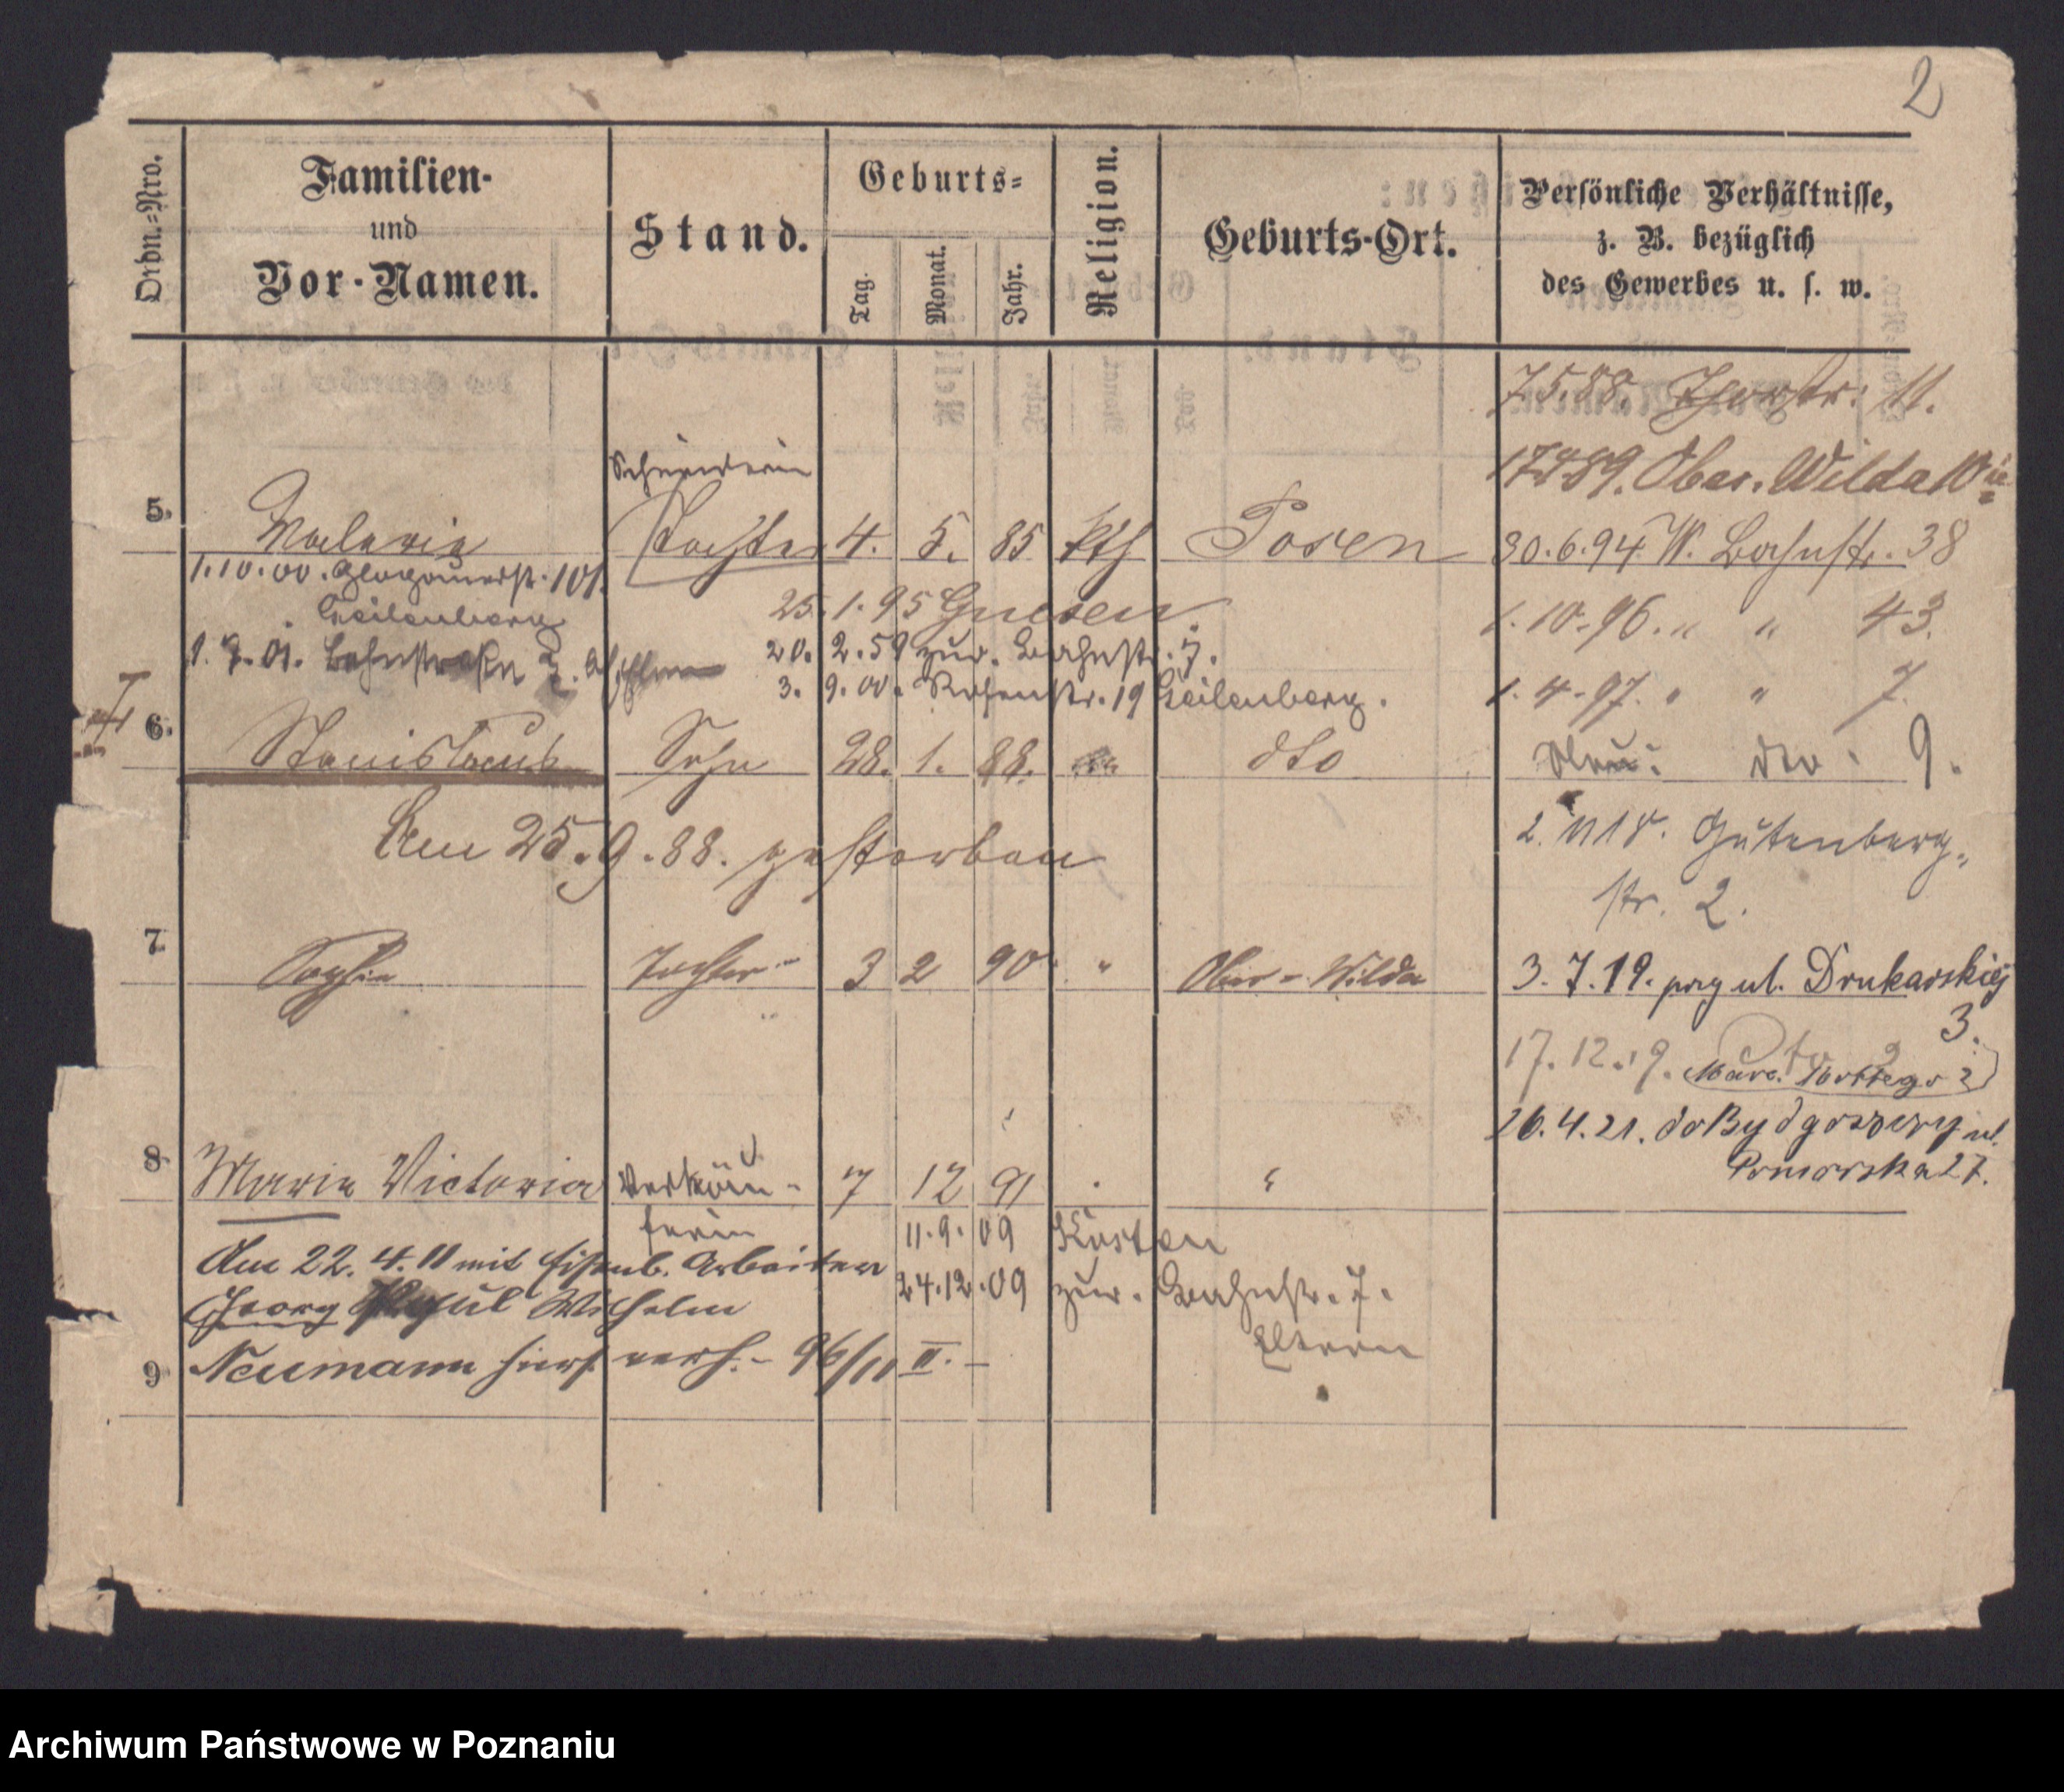 2
Ordn.=Nro.
Familien-
und
Vor-Namen.
Stand.
Geburts=
Tag.
Monat.
Jahr.
Religion.
Geburts-Ort.
Persönliche Verhältnisse,
z. B. bezüglich
des Gewerbes u. s. w.
7.5.88. Thorstr. 11.
Schneiderin
89. Ober. Wilda 10
5. Valeria Tochter 4. 5. 85 kth Posen 30.6.94. W. Bahnstr. 38
1.10.00. Glogauerstr. 101.
25.1.95 Gnesen.
1.10.96. " " 43.
20.2.59 zur. Bahnstr. 7.
1. 7. 01. Bahnstraße 7.
3. 9. 00. Rosenstr. 19
1.4.97. " " 7.
6. Stanislaus Sohn 28. 1. 88. dto
dto. 9.
Am 25.9.88. gestorben
Gutenberg-
str. 2.
7. Sophia Tochter 3 2 90 " Ober-Wilda
3.7.19. przy ul. Drukarskiej
3.
17.12.19. Marc. Mottego 2
26.4.21. do Bydgoszczy ul.
Pomorska 27.
8. Maria Victoria Verkäu- 7 12 91 "
ferin
11.9.09 Kosten
Am 22.4.11 mit Eisenb. Arbeiter
24.12.09 zur. Bahnstr. 7.
Georg Paul Wilhelm
Eltern
9 Neumann hier verh. - 96/11 II. -
Archiwum Państwowe w Poznaniu